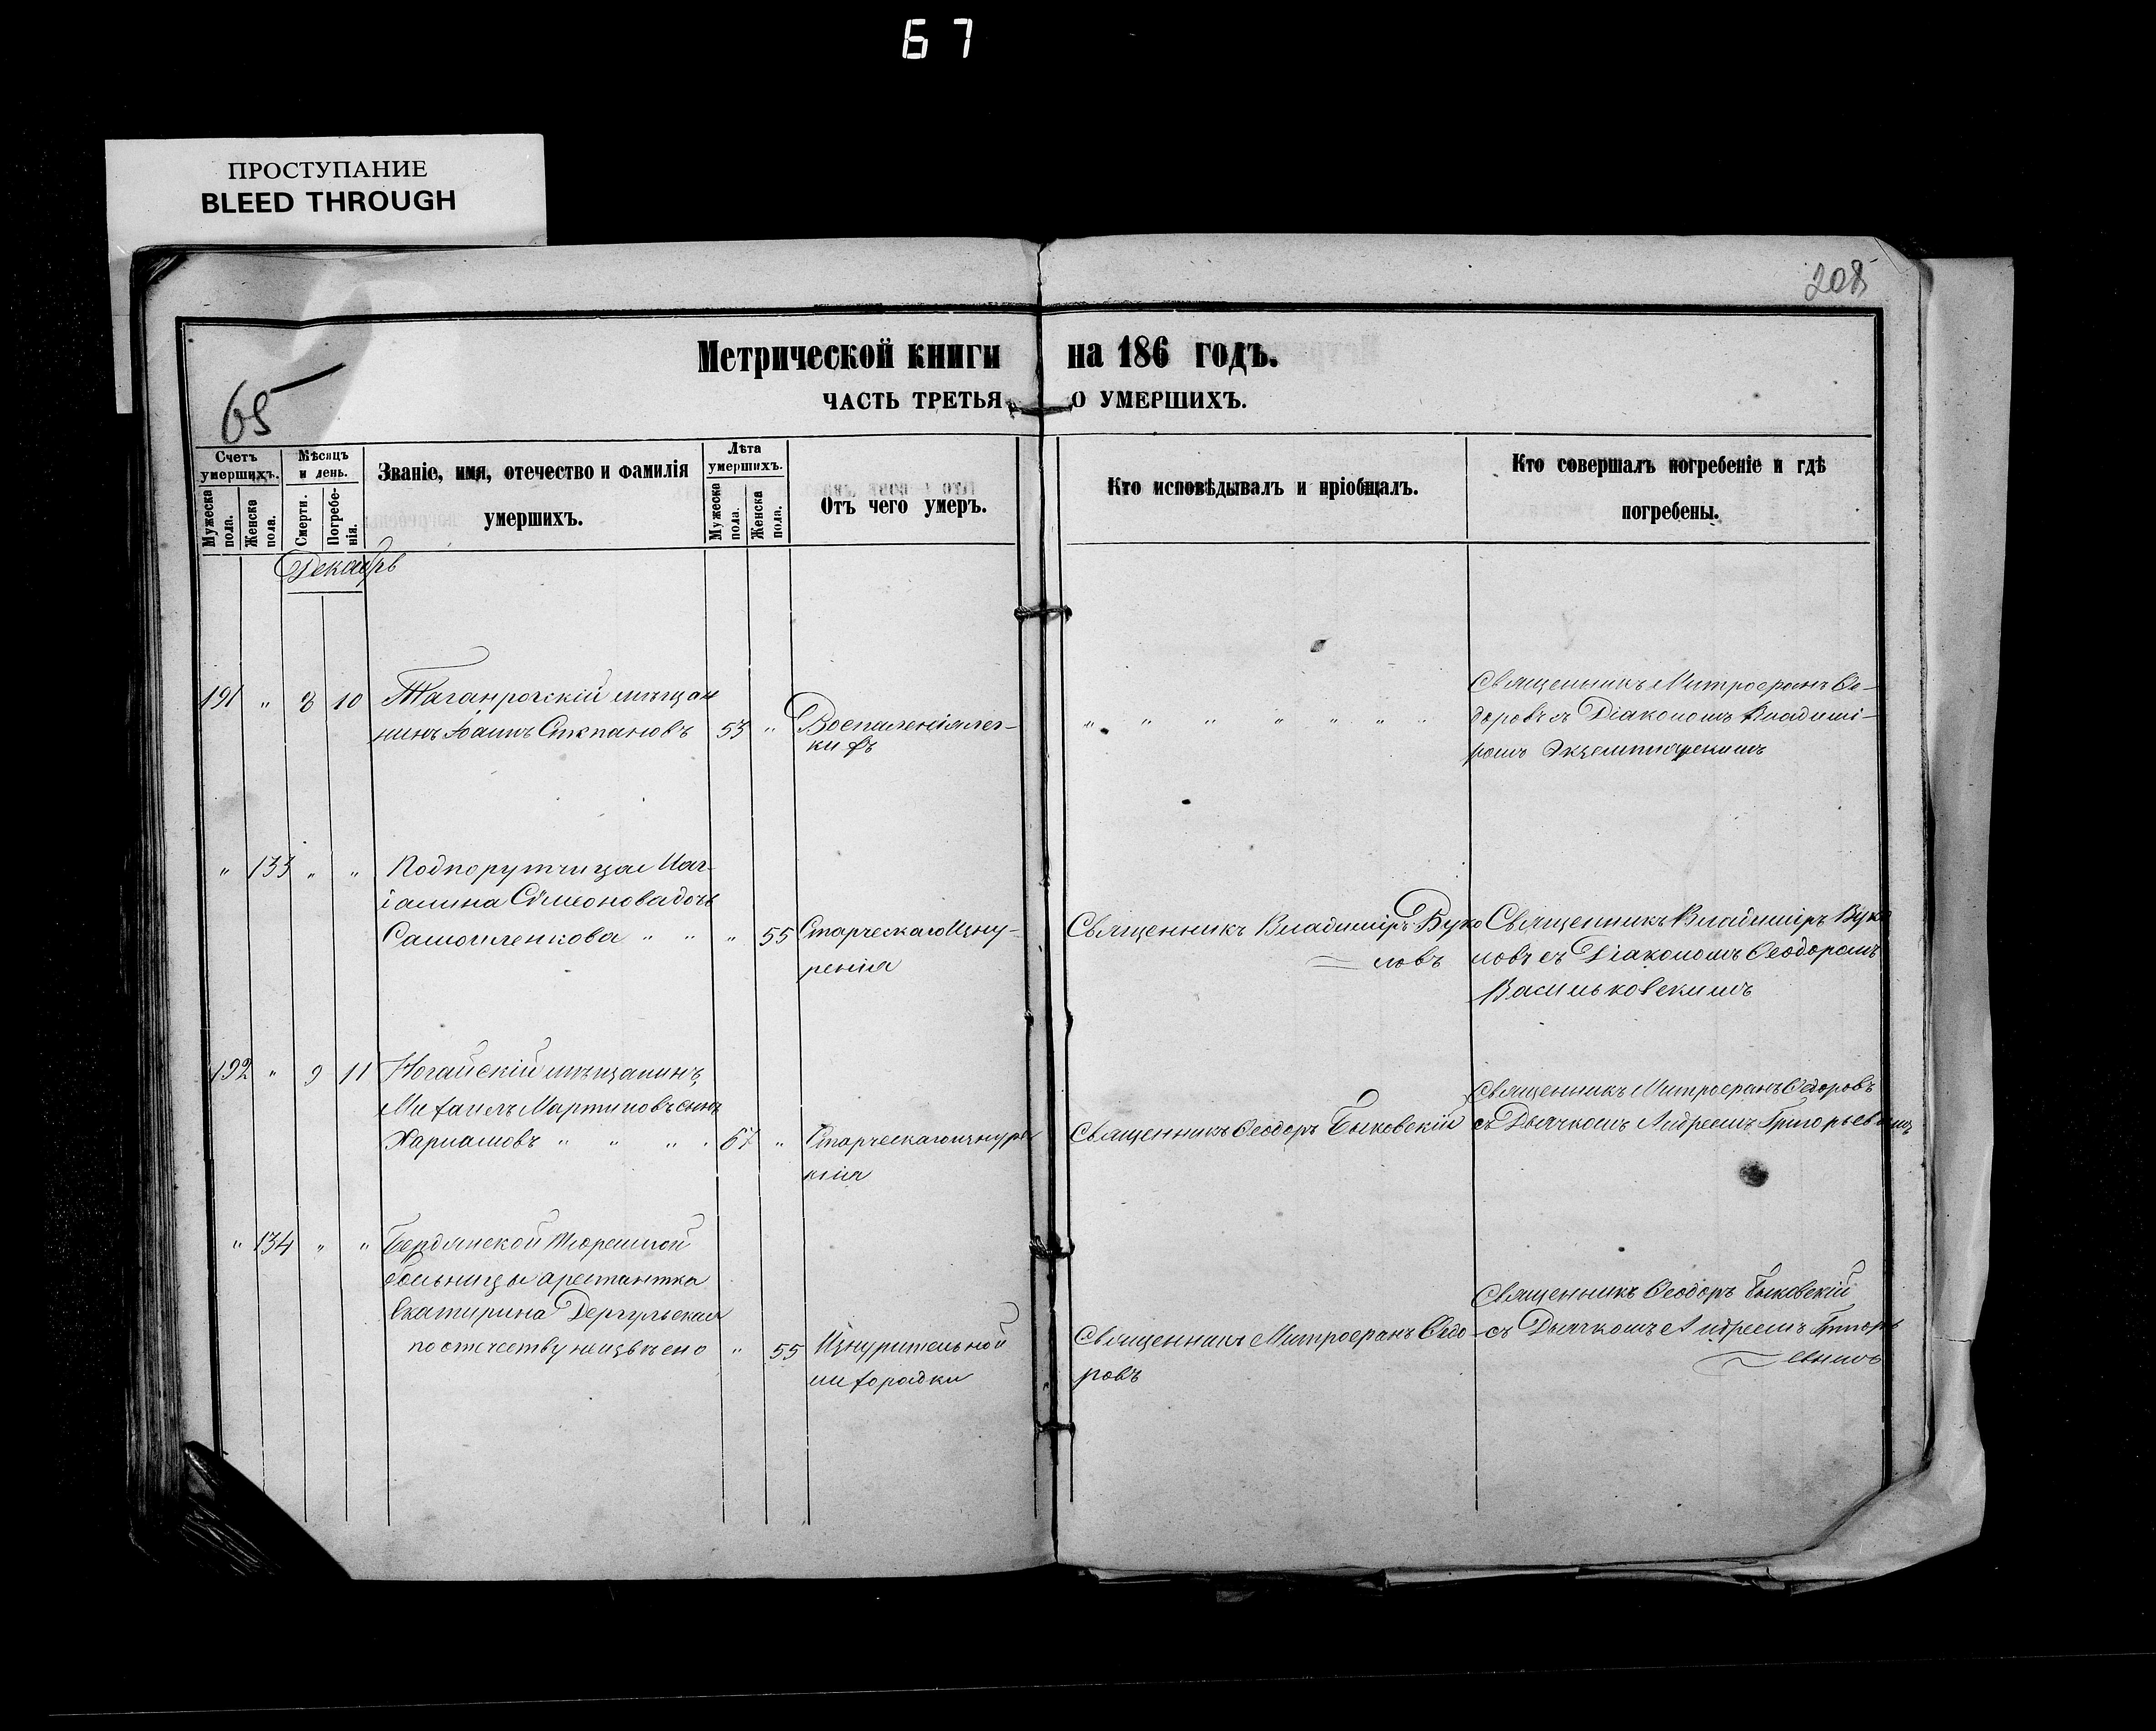 67
ПРОСТУПАНИЕ
BLEED THROUGH
208
65
Метрической книги на 186 годъ.
ЧАСТЬ ТРЕТЬЯ, О УМЕРШИХЪ.
Счетъ умершихъ.
Мужеска пола.
Женска пола.
Мѣсяцъ и день.
Смерти.
Погребенія.
Званіе, имя, отечество и фамилія
умершихъ.
Лѣта умершихъ.
Мужеска пола.
Женска пола.
Отъ чего умеръ.
Кто исповѣдывалъ и пріобщалъ.
Кто совершалъ погребеніе и гдѣ
погребены.
Декабрь
191 " 8 10 Таганрогскій мѣщан
нинъ Іоаннъ Степановъ 53 " Воспаленія лег-
кихъ
" " " " " " "
Священникъ Митрофанъ Ѳе-
доровъ съ Діакономъ Владимі-
ромъ
" 133 " " Подпорутчица
Сѵмеонова дочь
Самойленкова " " " 55 Старческаго Изну-
ренія
Священникъ Владиміръ Буко
ловъ
Священникъ Владиміръ Вуко
ловъ съ Діакономъ Ѳеодоромъ
Васильковскимъ
192 " 9 11 Ногайскій мѣщанинъ
Михаилъ Мартиновъ сынъ
" " " " 67 " Старческаго изнуре
нія
Священникъ Ѳеодоръ Быковскій
Священникъ Митрофанъ Ѳедоровъ
съ Дьячкомъ Андреемъ Григорьевымъ
" 134 " " Бердянской Тюремной
больницы арестантка
Екатирина Дергульская
по отечеству неизвѣсно " 55 Изнурительной
лихорадки
Священникъ Митрофанъ Ѳедо-
ровъ
Священникъ Ѳеодоръ Быковскій
съ Дьячкомъ Андреемъ Григорь
евымъ